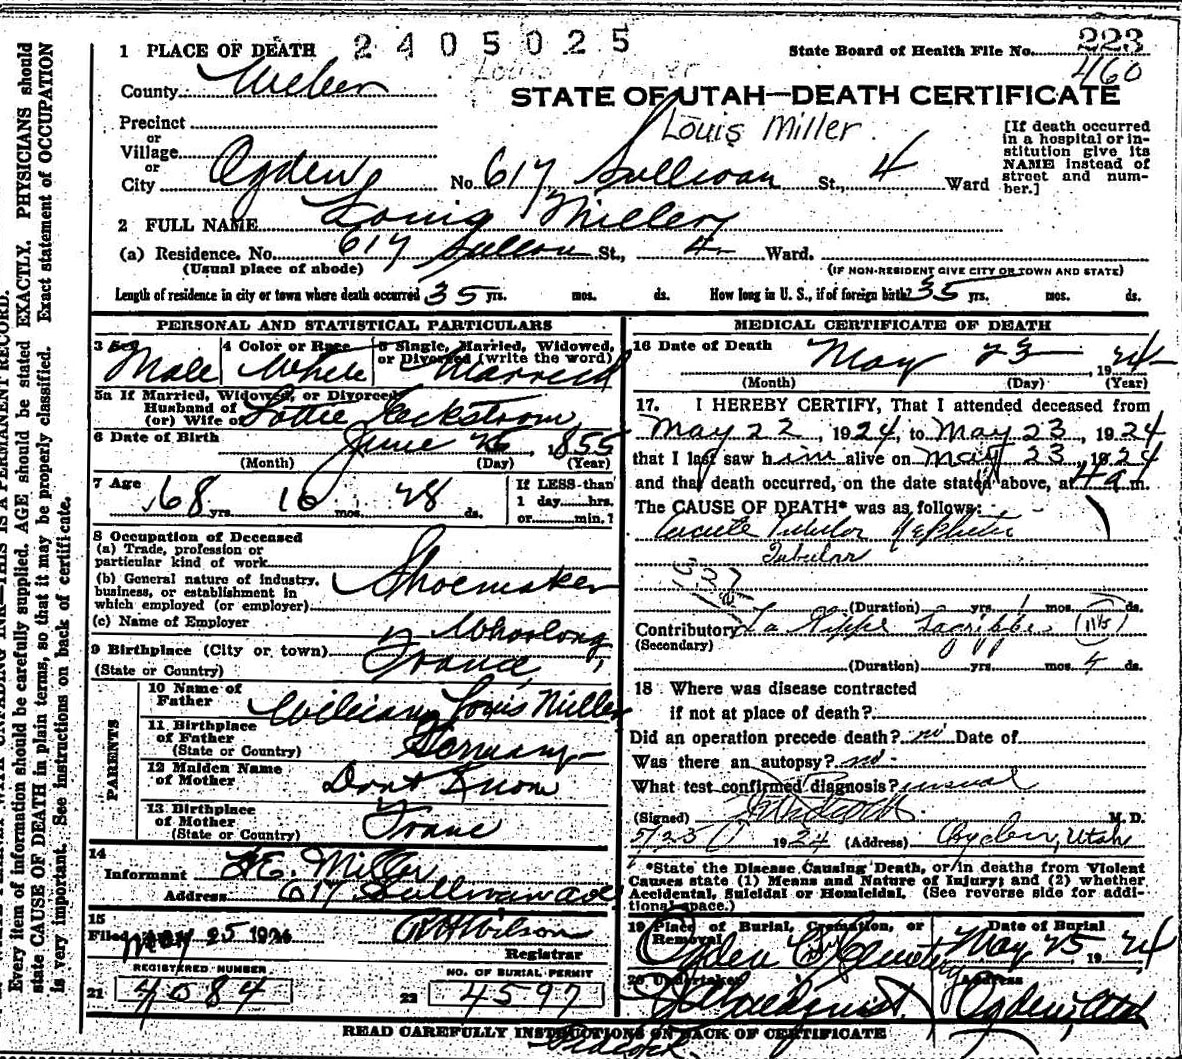 1 PLACE OF DEATH 2405025 State Board of Health File No. 223
460
County Weber
STATE OF UTAH—DEATH CERTIFICATE
Louis Miller
Precinct
or
Village
or
City Ogden No. 617 Sullivan St., 4 Ward
[If death occurred
in a hospital or in-
stitution give its
NAME instead of
street and num-
ber.]
2 FULL NAME Louis Miller
(a) Residence. No. 617 St., 4 Ward.
(Usual place of abode) (IF NON-RESIDENT GIVE CITY OR TOWN AND STATE)
Length of residence in city or town where death occurred 35 yrs. mos. ds. How long in U. S., if of foreign birth? 35 yrs. mos. ds.
PERSONAL AND STATISTICAL PARTICULARS
3 Sex
Male
4 Color or Race
White
5 Single, Married, Widowed,
or Divorced (write the word)
Married
5a If Married, Widowed, or Divorced
Husband of
(or) Wife of Lottie Heckstrom
6 Date of Birth June 26, 1855
(Month) (Day) (Year)
7 Age 68 yrs. 10 mos. 28 ds.
If LESS than
1 day hrs.
or min.?
8 Occupation of Deceased
(a) Trade, profession or
particular kind of work
(b) General nature of industry,
business, or establishment in
which employed (or employer)
Shoemaker
(c) Name of Employer
9 Birthplace (City or town)
(State or Country) France
PARENTS
10 Name of
Father William Louis Miller
11 Birthplace
of Father
(State or Country) Germany
12 Maiden Name
of Mother Dont Know
13 Birthplace
of Mother
(State or Country) France
14
Informant H.E. Miller
Address 617 Sullivan ave
15
Filed May 25 1924 Wilson
Registrar
REGISTERED NUMBER
21 4084
NO. OF BURIAL PERMIT
22 4597
MEDICAL CERTIFICATE OF DEATH
16 Date of Death May 23, 1924
(Month) (Day) (Year)
17. I HEREBY CERTIFY, That I attended deceased from
May 22, 1924, to May 23, 1924
that I last saw him alive on May 23, 1924
and that death occurred, on the date stated above, at 4 a m.
The CAUSE OF DEATH* was as follows:
Acute Tubular Nephritis
Tubular
(Duration) yrs. 1 mos. ds.
Contributory La Grippe Lagrippe (11b)
(Secondary)
(Duration) yrs. mos. 4 ds.
18 Where was disease contracted
if not at place of death?
Did an operation precede death? no Date of
Was there an autopsy? no
What test confirmed diagnosis? usual
(Signed) M. D.
5/23 1924 (Address) Ogden, Utah
*State the Disease Causing Death, or in deaths from Violent
Causes state (1) Means and Nature of Injury; and (2) whether
Accidental, Suicidal or Homicidal. (See reverse side for addi-
tional space.)
19 Place of Burial, Cremation, or
Removal
Ogden City Cemetery
Date of Burial
May 25 1924
20 Undertaker
Address
Ogden, Utah
READ CAREFULLY INSTRUCTIONS ON BACK OF CERTIFICATE
Every item of information should be carefully supplied. AGE should be stated EXACTLY. PHYSICIANS should
state CAUSE OF DEATH in plain terms, so that it may be properly classified. Exact statement of OCCUPATION
is very important. See instructions on back of certificate.